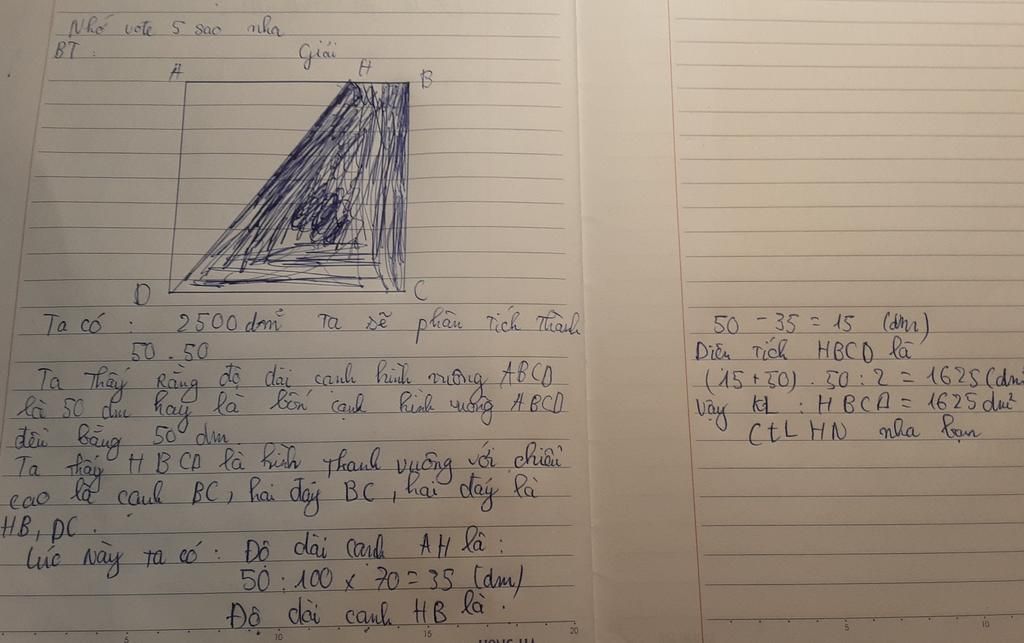 Nhớ vote 5 sao nha
BT :
Giải
A
H
B
D
C
Ta có : 2500 dm² Ta sẽ phân tích thành
50 . 50
Ta thấy rằng độ dài cạnh hình vuông ABCD
là 50 dm hay là bốn cạnh hình vuông ABCD
đều bằng 50 dm.
Ta thấy HBCD là hình thanh vuông với chiều
cao là cạnh BC, hai đáy BC, hai đáy là
HB, DC.
Lúc này ta có : Độ dài cạnh AH là :
50 : 100 x 70 = 35 (dm)
Độ dài cạnh HB là .
5
10
15
20
50 - 35 = 15 (dm)
Diên tích HBCD là
(15 + 50) . 50 : 2 = 1625 (dm
Vậy KL : HBCD = 1625 dm²
CtLHN nha bạn
5
10